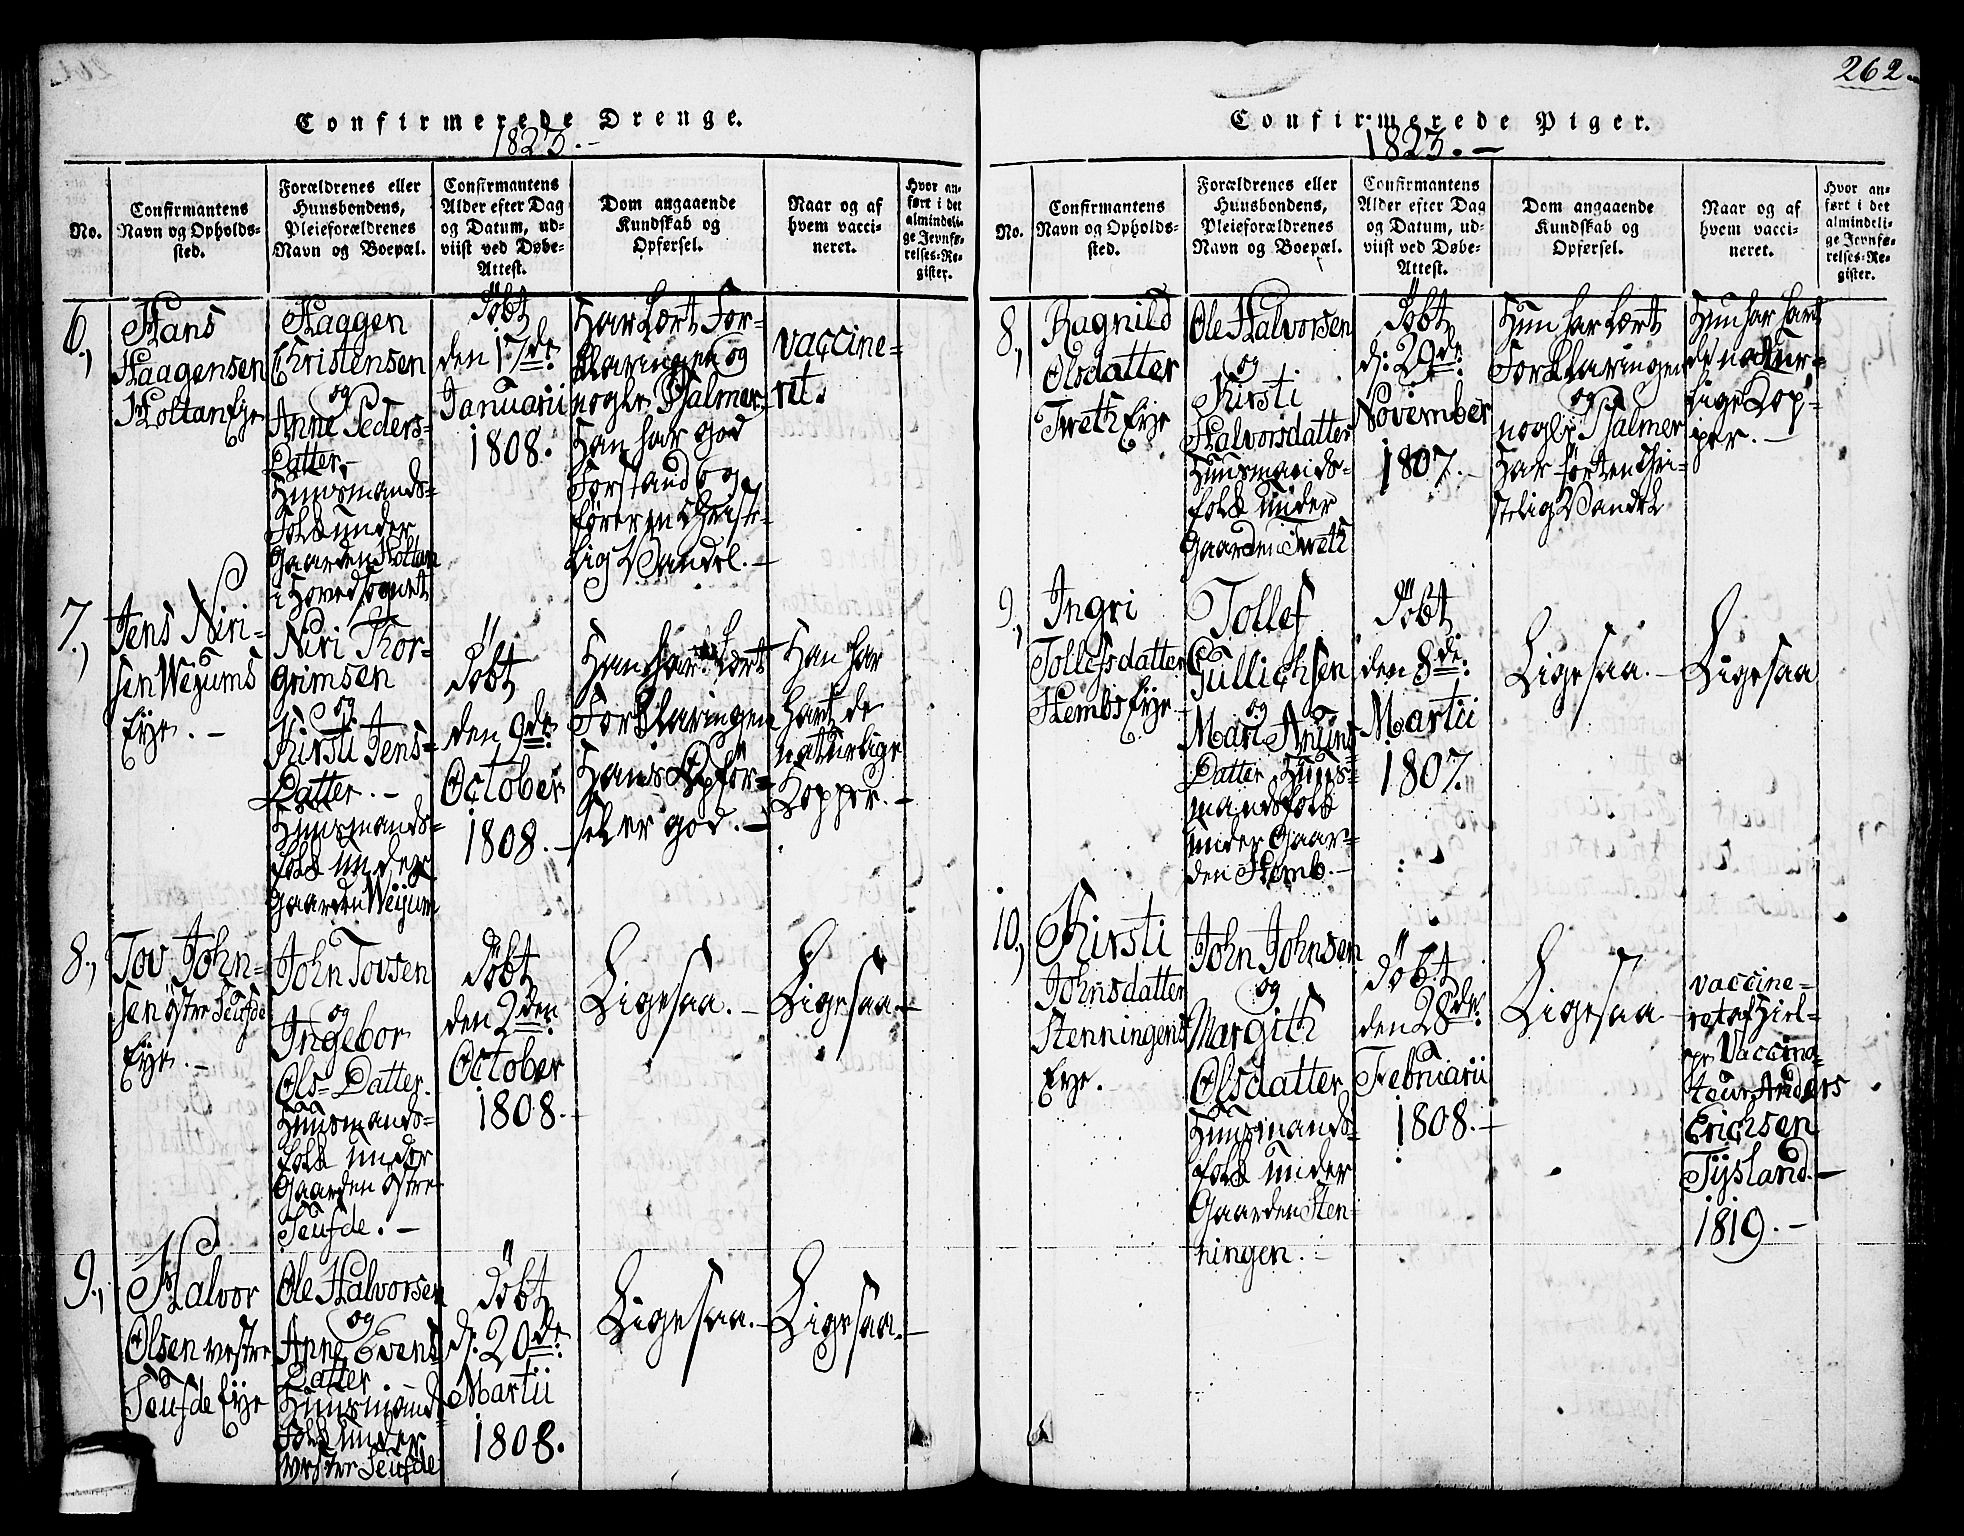 Confirmerede Drenge.
1823. -
No.
Confirmantens
Navn og Opholds-
sted.
Forældrenes eller
Huusbondens,
Pleieforældrenes
Navn og Boepæl.
Confirmantens
Alder efter Dag
og Datum, ud-
viist ved Døbe-
Attest.
Dom angaaende
Kundskab og
Opførsel.
Naar og af
hvem vacci-
neret.
Hvor an-
ført i det
almindeli-
ge Jevnfø-
relses-Re-
gister.
6.,
Hans
Haagensen
Holtan Eye
Haggen
Christensen
og
Anne Peders-
Datter. -
Huusmands-
folk under
Gaarden Holtan
i Hovedsognet
Döbt
den 17de
Januarii
1808.
Har lært For-
klaringen og
nogle Psalmer,
Han har god
Forstand og
fører en Christe-
lig Vandel. -
vaccine-
ret.
7.,
Jens Niri-
sen Weyums
Eye. -
Niri Thor-
grimsen
og
Kirsti Jens-
Datter. -
Huusmands-
folk under
Gaarden Weyum
Döbt
den 9de
October
1808. -
Han har lært
Forklaringen
Hans Opfør-
sel er god. -
Han har
hart de
naturlige
Kopper. -
8.,
Tov John-
sen östre Seufde
Eye. -
John Tovsen
og
Ingebor
Ols-Datter.
Huusmands-
folk under
Gaarden östre
Seufde. -
Döbt
den 2den
October
1808. -
Ligesaa. -
Ligesaa. -
9.,
Halvor
Olsen vestre
Seufde Eye
Ole Halvorsen
og
Anne Evens
Datter
Huusmands-
folk under
vester Seufde
döbt
d: 20de
Martii
1808.
Ligesaa. -
Ligesaa. -
262.
Confirmerede Piger.
1823. -
No.
Confirmantens
Navn og Opholds-
sted.
Forældrenes eller
Huusbondens,
Pleieforældrenes
Navn og Boepæl.
Confirmantens
Alder efter Dag
og Datum, ud-
viist ved Døbe-
Attest.
Dom angaaende
Kundskab og
Opførsel.
Naar og af
hvem vacci-
neret.
Hvor an-
ført i det
almindeli-
ge Jevnfø-
relses-Re-
gister.
8,
Ragnild
Olsdatter
Tweth Eye
Ole Halvorsen
og
Kirsti
Halvorsdatter
Huusmands-
folk under
Gaarden Tweth
Döbt
d: 29de
November
1807. -
Hun har lært
Forklaringen
og
nogle Psalmer
Har ført en Chri-
stelig Vandel
Hun har hart
de natur-
lige Kop-
per. -
9,
Ingri
Tollefsdatter
Hembs Eye -
Tollef
Gullichsen
og
Mari Anuns
Datter Huus-
mandsfolk
under Gaar-
den Hemb. -
Döbt
den 8de:
Martii
1807.
Ligesaa. -
Ligesaa
10.,
Kirsti
Johnsdatter
Stenningens
Eye.
John Johnsen
og
Margith
Olsdatter
Huusmands-
folk under
Gaarden Sten-
ningen. -
döbt
den 28de.
Februarii
1808. -
Ligesaa -
vaccine-
ret af Hiel-
pe Vaccina-
teur Anders
Erichsen
Tysland. -
1819. -